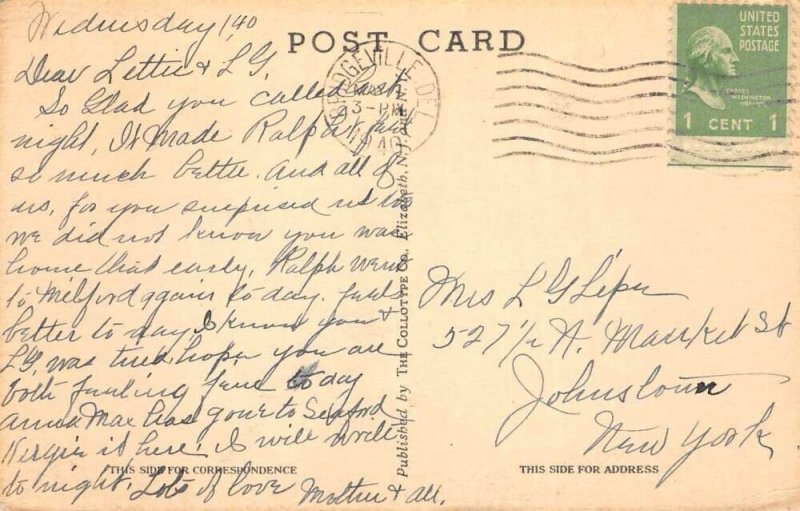 Wednesday 1,40
POST CARD
Dear Lettie & L G,
So Glad you called last
night, It Made Ralph feel
so much better. And all of
us, for you surprised us as
we did not know you was
home that early, Ralph went
to Milford again to day. feels
better to day, I know you &
L G, was tired, hope you are
both feeling fine today
Anna Mae has gone to Seaford
is here I will write
to night. Lots of love Mother & all.
THIS SIDE FOR CORRESPONDENCE
Published by THE COLLOTYPE CO., Elizabeth, N.J.
BRIDGEVILLE DEL.
3-PM
1940
UNITED
STATES
POSTAGE
GEORGE
WASHINGTON
1 CENT 1
Mrs L G
527 1/2 N. Market St
Johnstown
New York
THIS SIDE FOR ADDRESS